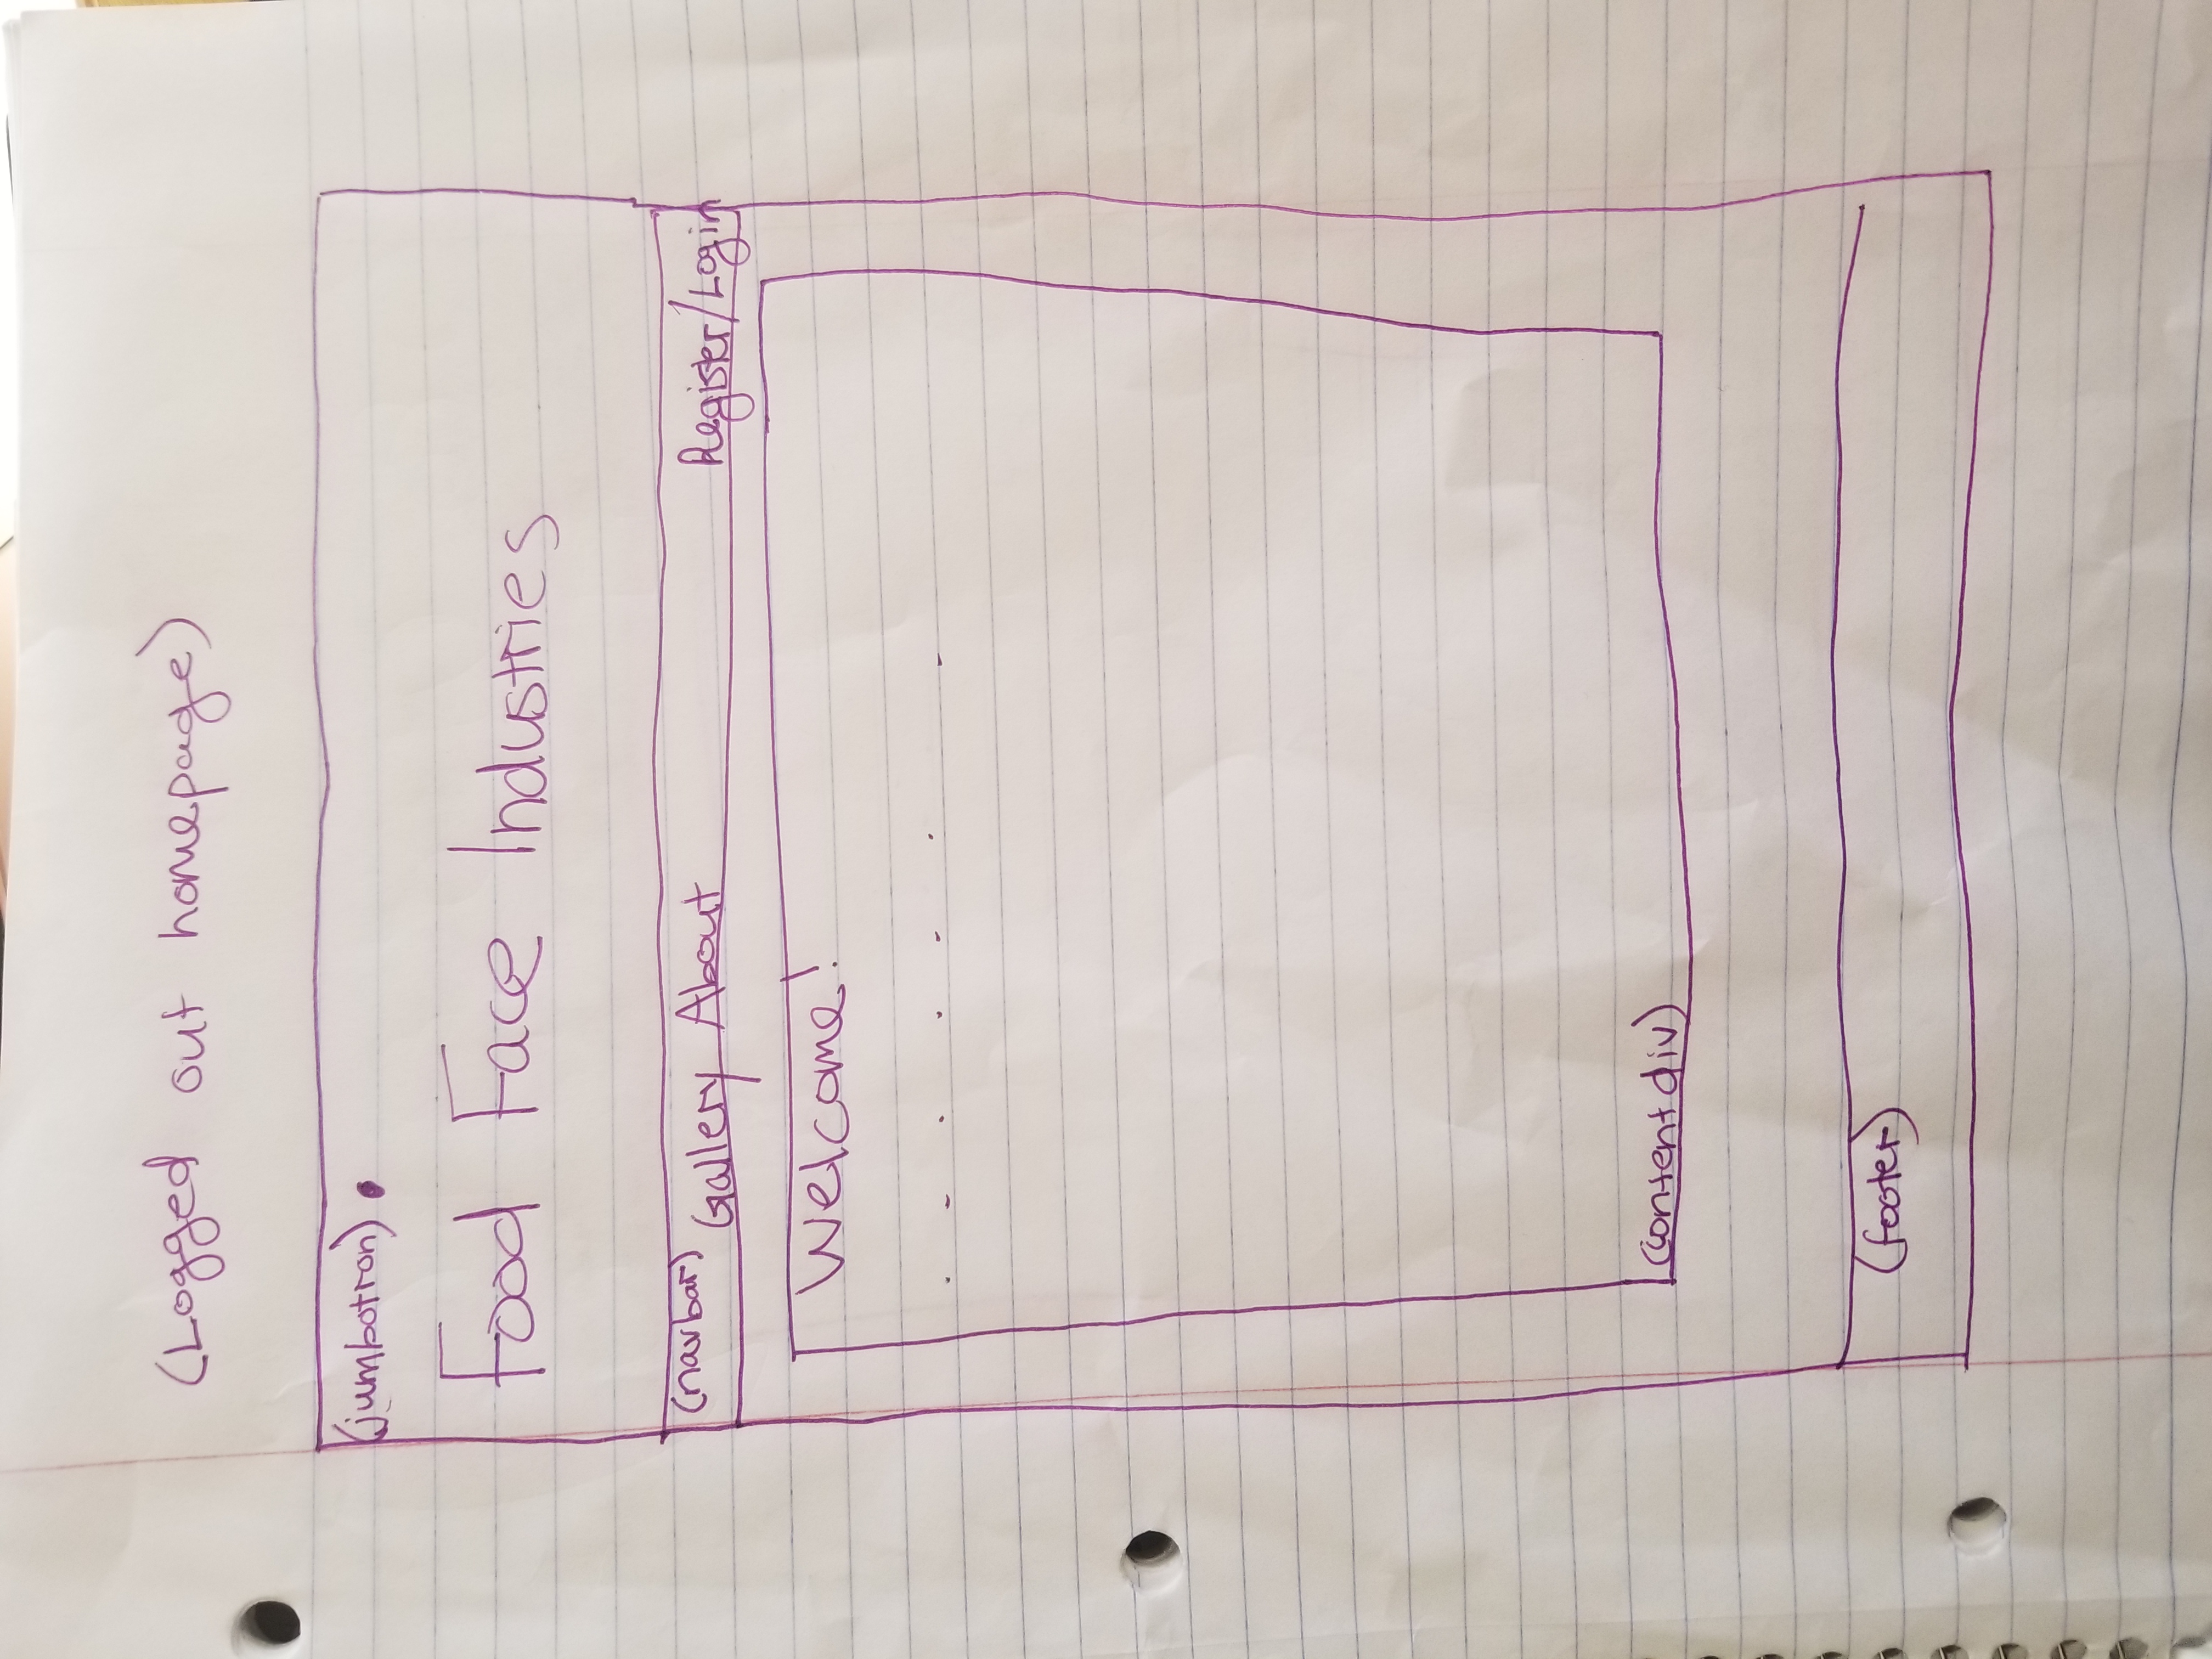 (Logged out homepage)
(jumbotron)
Food Face Industries
(navbar) Gallery About Register/Login
Welcome!
. . . . . . .
(content div)
(footer)